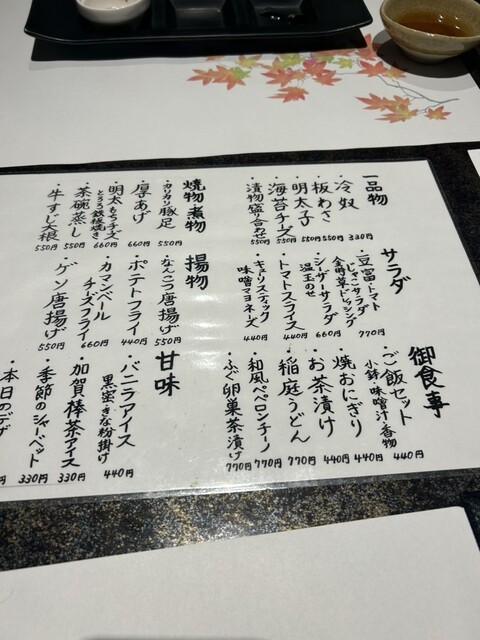 一品物
・冷奴 330円
・板わさ 550円
・明太子 550円
・海苔チーズ 550円
・漬物盛り合わせ 550円
焼物・煮物
・カリカリ豚足 550円
・厚あげ 660円
・明太もちチーズ
とろろ鉄板焼き 660円
・茶碗蒸し 550円
・牛すじ大根 550円
サラダ
・豆富・トマト
じゃこサラダ
金時草ドレッシング 770円
・シーザーサラダ
温玉のせ 660円
・トマトスライス 440円
・キュウリスティック
味噌マヨネーズ 440円
揚物
・なんこつ唐揚げ 550円
・ポテトフライ 440円
・カマンベール
チーズフライ 660円
・ゲソ唐揚げ 550円
御食事
・ご飯セット
小鉢・味噌汁・香物 440円
・焼おにぎり 440円
・お茶漬け 440円
・稲庭うどん 770円
・和風ペペロンチーノ 770円
・ふぐ卵巣茶漬け 770円
甘味
・バニラアイス
黒蜜きな粉掛け 440円
・加賀棒茶アイス 330円
・季節のシャーベット 330円
・本日のデザ
円